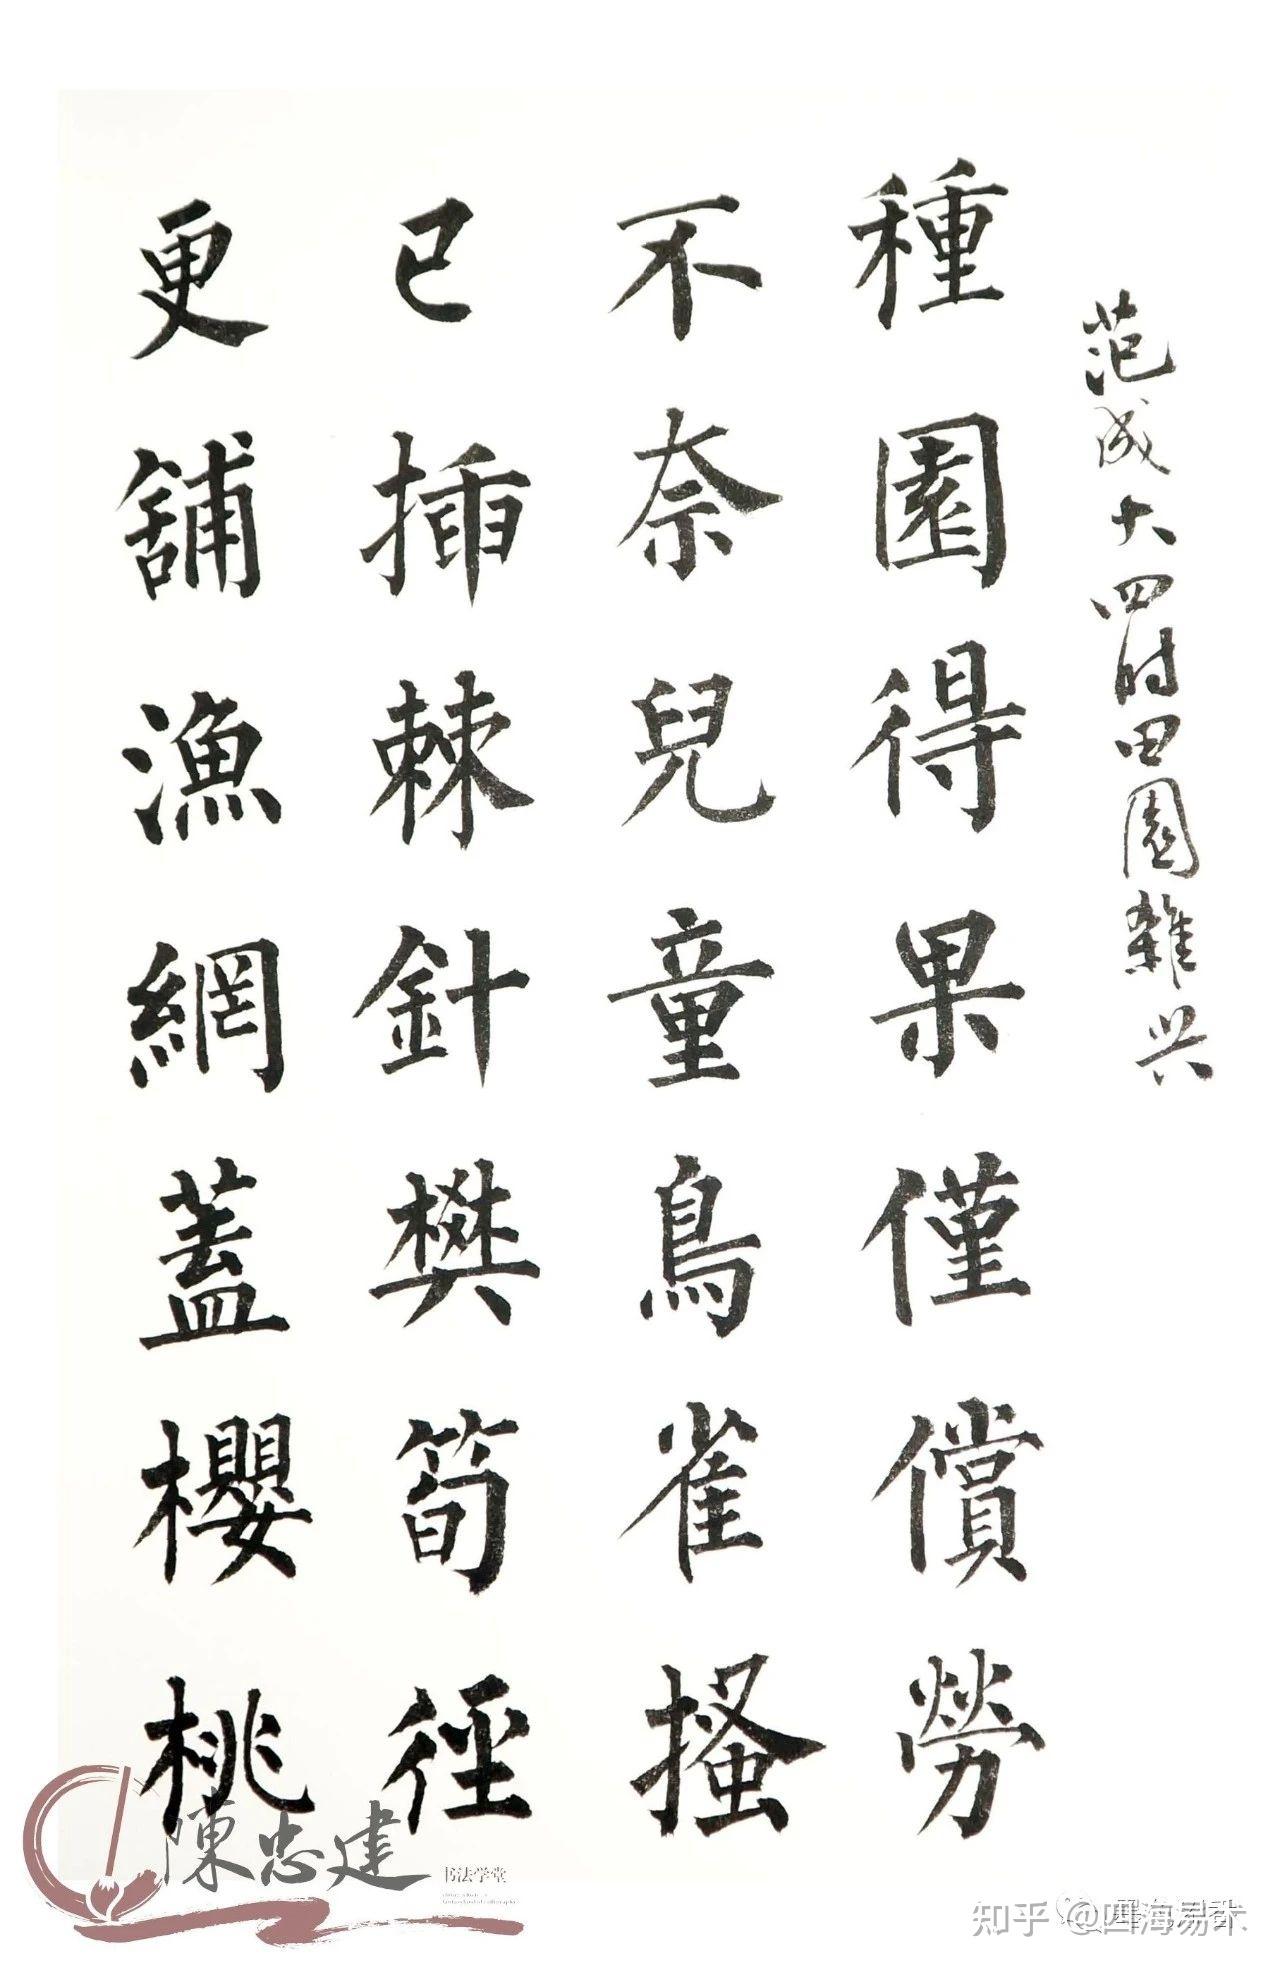 范成大四时田园雜兴
種園得果僅償勞
不奈兒童鳥雀搔
已插棘針樊筍徑
更舖漁網蓋櫻桃
陳忠建
书法学堂
知乎 @四海易朩